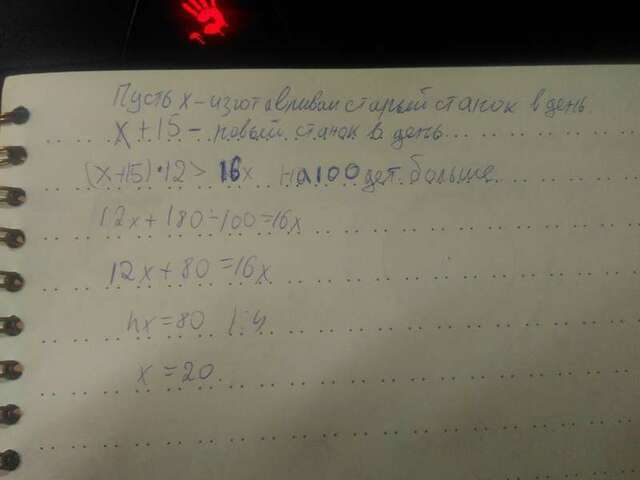 Пусть x - изготавливал старый станок в день
x + 15 - новый станок в день
(x+15)·12 > 16x на 100 дет. больше
12x + 180 - 100 = 16x
12x + 80 = 16x
4x = 80 |:4
x = 20